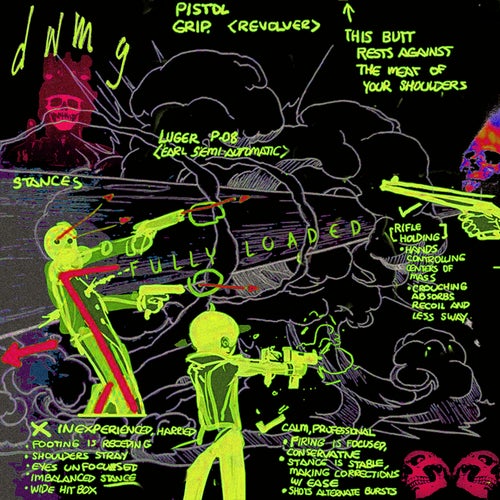 dwmg
PISTOL
GRIP. <REVOLVER>
THIS BUTT
RESTS AGAINST
THE MEAT OF
YOUR SHOULDERS
LUGER P-08
<EARL SEMI AUTOMATIC>
STANCES
FULLY LOADED
[RIFLE
HOLDING]
• HANDS
CONTROLLING
CENTERS OF
MASS
• CROUCHING
ABSORBS
RECOIL AND
LESS SWAY.
X INEXPERIENCED, HARRIED
• FOOTING IS RECEDING
• SHOULDERS STRAY
• EYES UNFOCUSSED
IMBALANCED STANCE
• WIDE HIT BOX
✓ CALM, PROFESSIONAL
• FIRING IS FOCUSED,
CONSERVATIVE
STANCE IS STABLE,
MAKING CORRECTIONS
W/ EASE
• SHOTS ALTERNATE BURSTS